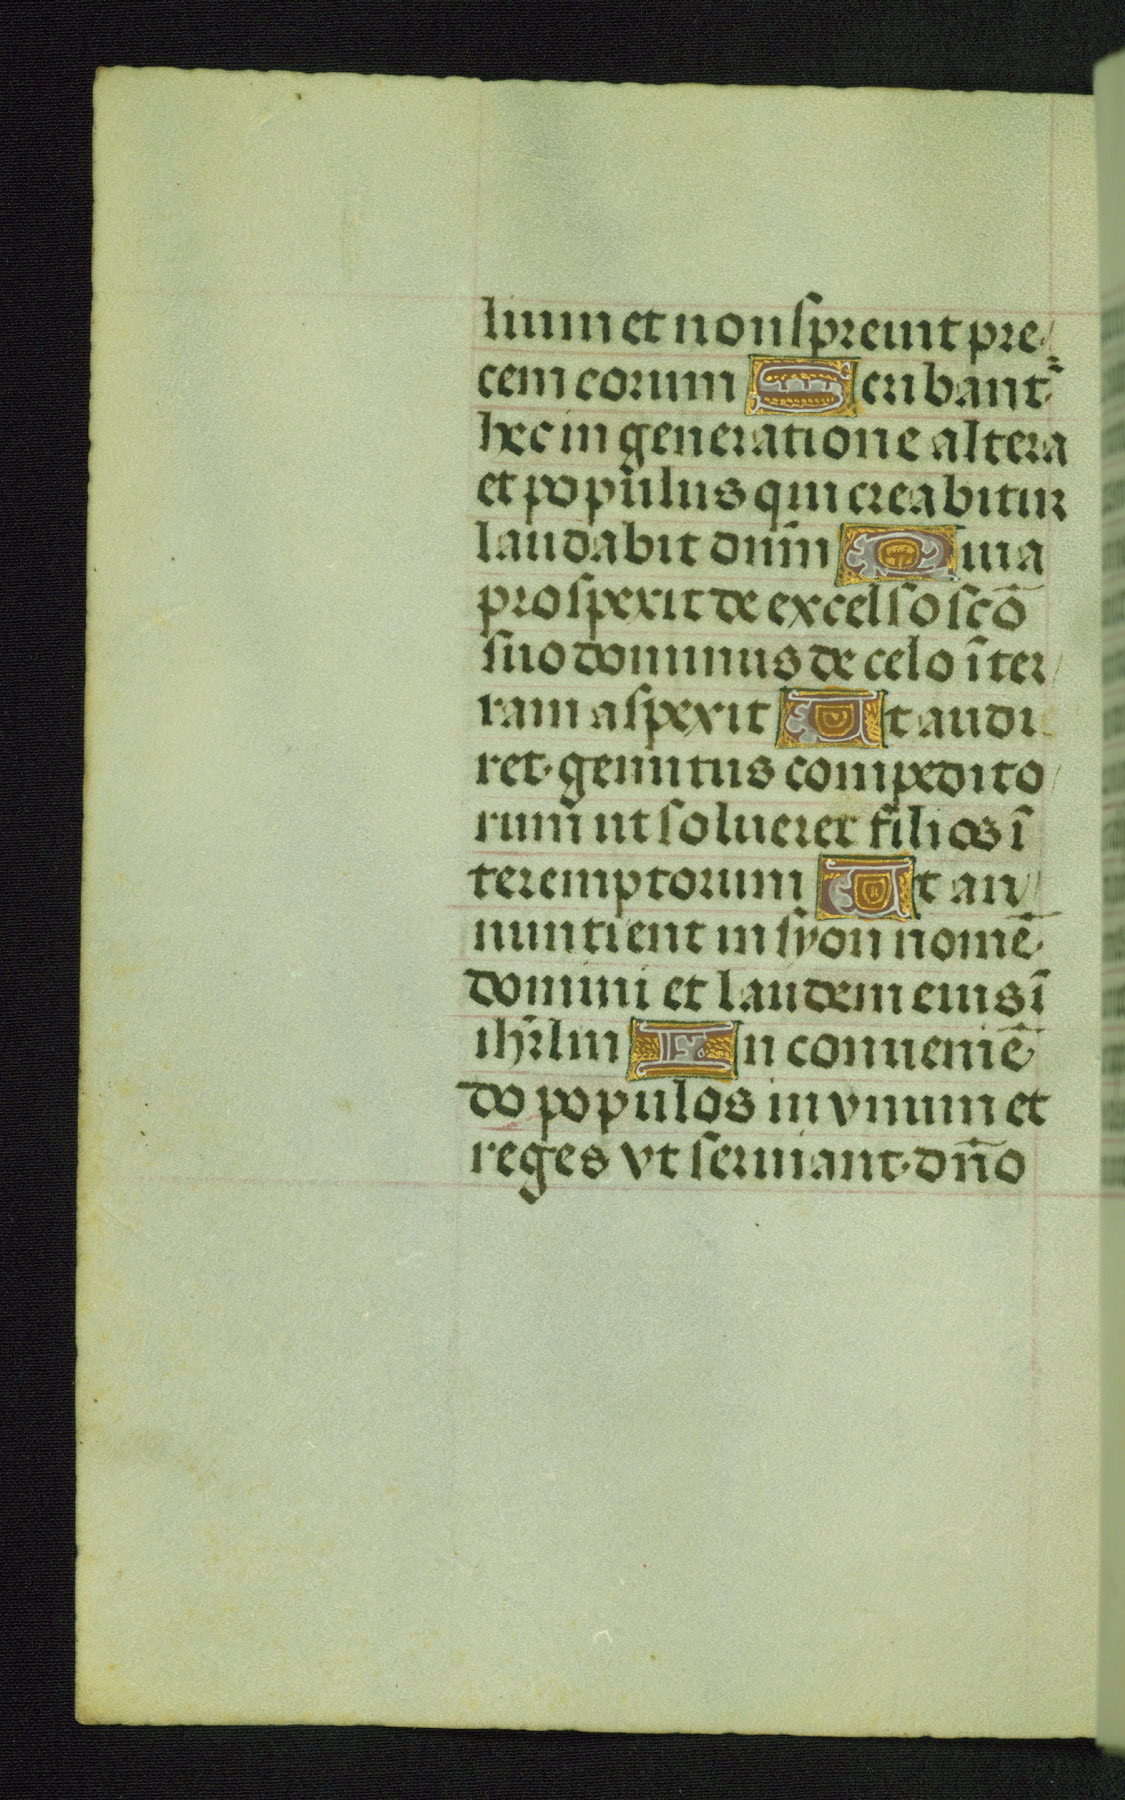 lium et non spreuit pre
cem eorum Scribant͛
hec in generatione altera
et populus qui creabitur
laudabit dn̄m Quia
prospexit de excelso scō
suo dominus de celo ī ter
ram aspexit Vt audi
ret gemitus compedito
rum ut solueret filios ī
teremptorum Vt an
nuntient in syon nomē
domini et laudem eius ī
ihr̄lm In conueniē
do populos in vnum et
reges vt seruiant dn̄o